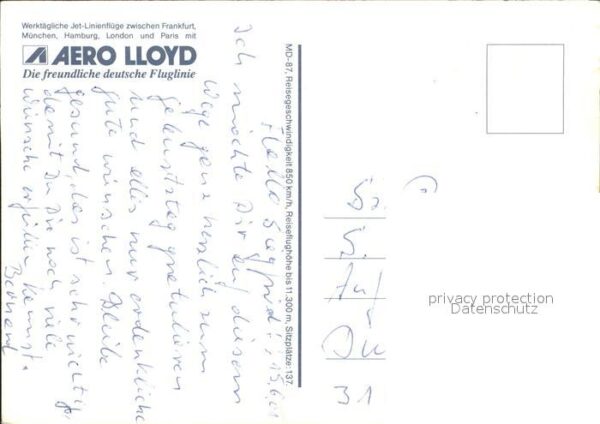 Werktägliche Jet-Linienflüge zwischen Frankfurt,
München, Hamburg, London und Paris mit
AERO LLOYD
Die freundliche deutsche Fluglinie
MD-87, Reisegeschwindigkeit 850 km/h, Reiseflughöhe bis 11.300 m, Sitzplätze: 137.
15.6.01
Ich möchte Dir auf diesem
Wege ganz herzlich zum
Geburtstag gratulieren
und alles nur erdenkliche
gute wünschen. Bleibe
gesund, das ist sehr wichtig
damit Du Dir noch viele
wünsche erfüllen kannst.
Bernard
31
privacy protection
Datenschutz